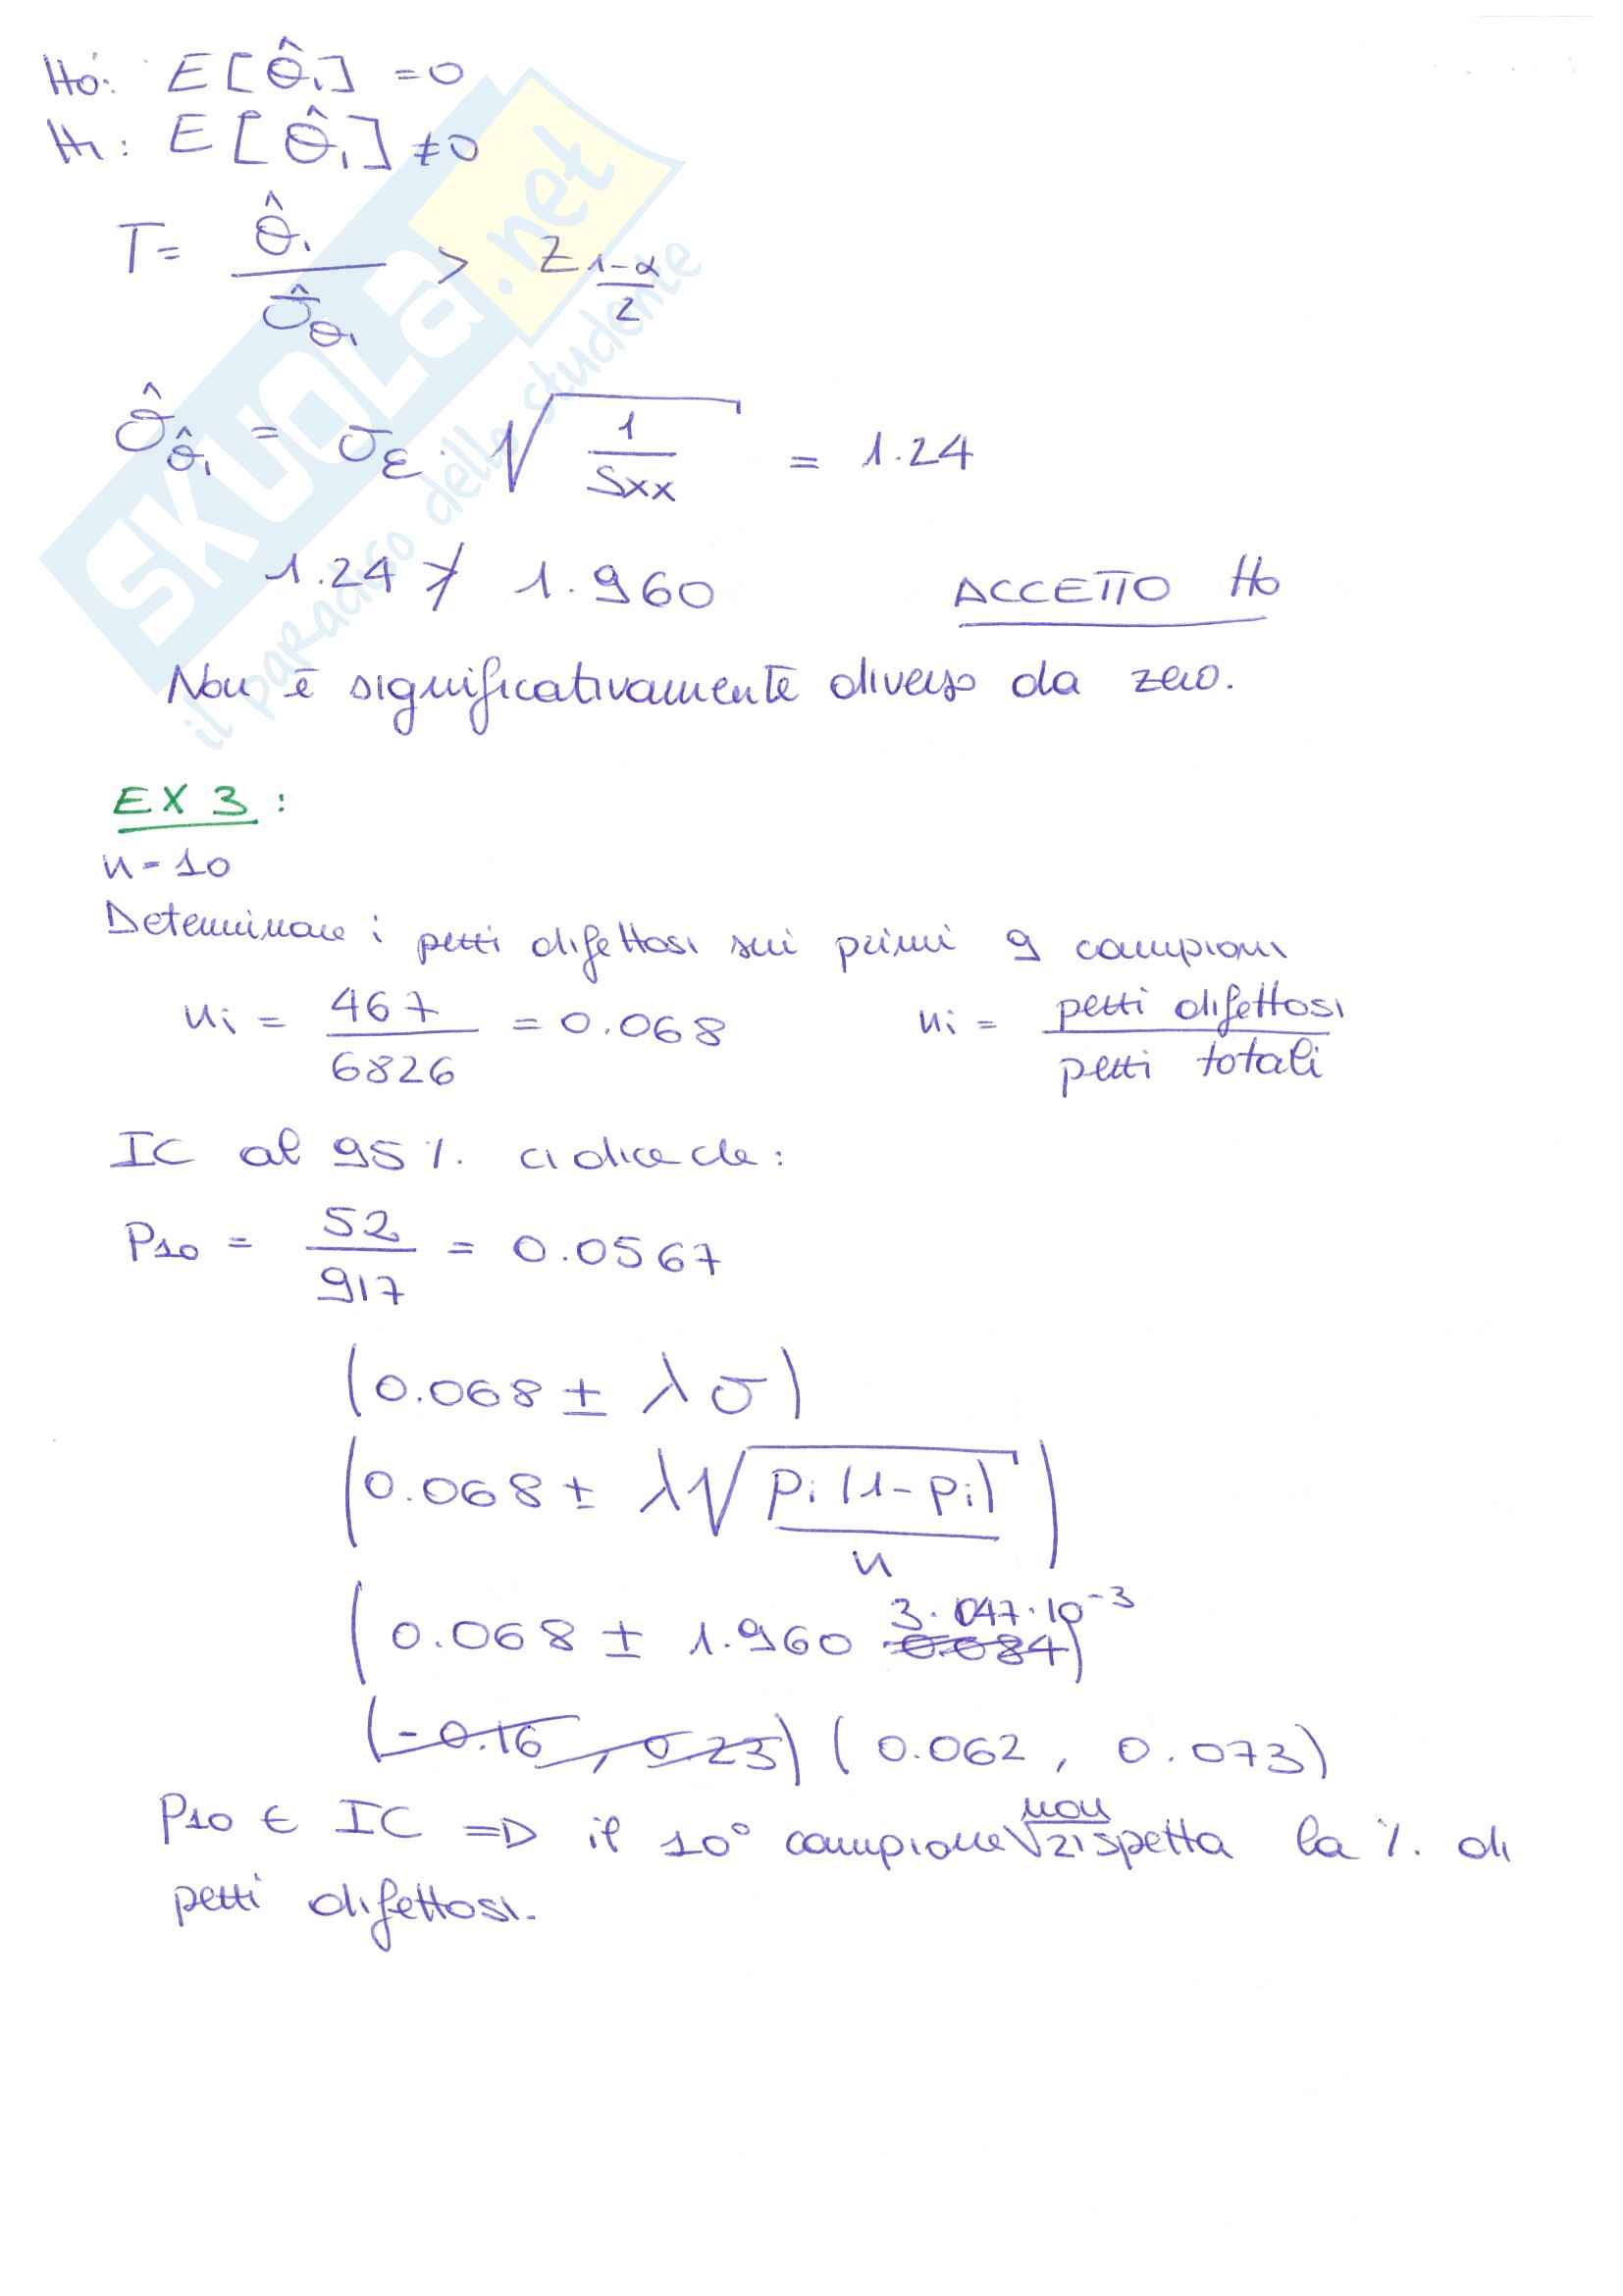 H₀: E[θ̂₁] = 0
H₁: E[θ̂₁] ≠ 0
T = θ̂₁ / σ̂_θ₁ > Z_(1-α)/2
σ̂_θ̂₁ = σ_ε · √(1/Sxx) = 1.24
1.24 ≯ 1.960 ACCETTO H₀
Non è significativamente diverso da zero.
EX 3 :
n = 10
Determinare i petti difettosi sui primi 9 campioni
ui = 467/6826 = 0.068 ui = petti difettosi / petti totali
IC al 95%. ci dice che:
P₁₀ = 52/917 = 0.0567
(0.068 ± λσ)
(0.068 ± λ√(pi(1-pi)/n))
(0.068 ± 1.960 0.084 3.047·10⁻³)
(-0.16 , 0.23) (0.062 , 0.073)
P₁₀ ∈ IC => il 10° campione non rispetta la %. di
petti difettosi.
SKUOLa.net
il paradiso dello studente